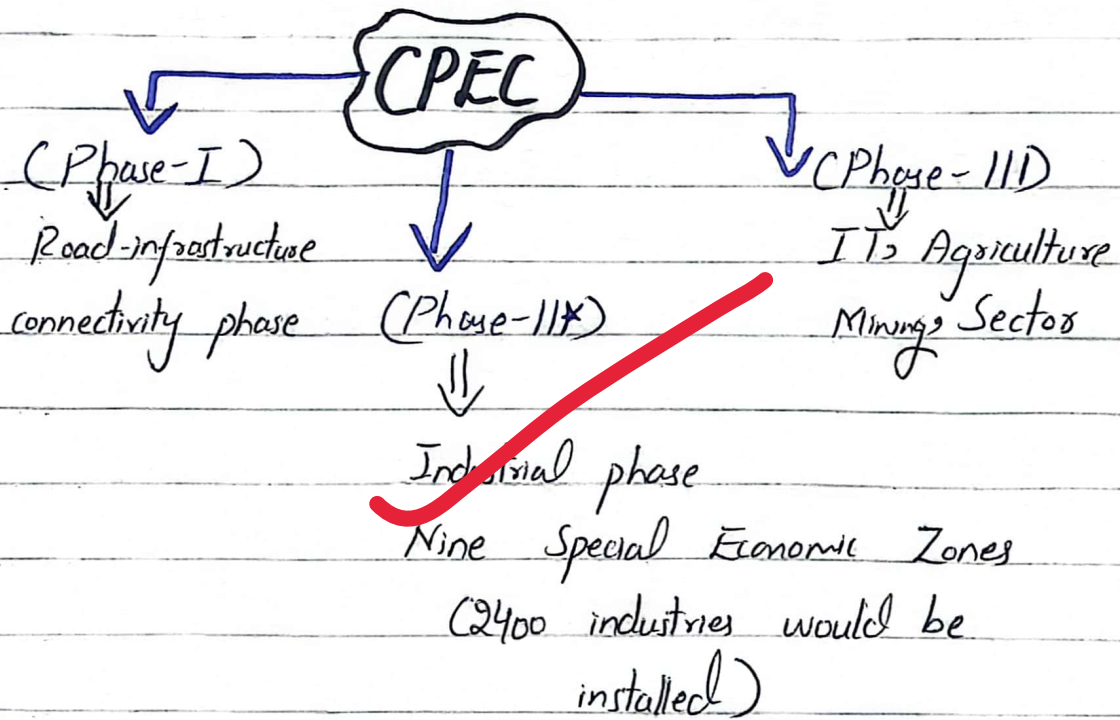 CPEC
(Phase-I)
Road-infrastructure
connectivity phase
(Phase-II)
Industrial phase
Nine Special Economic Zones
(2400 industries would be
installed)
(Phase-III)
IT, Agriculture
Mining, Sector